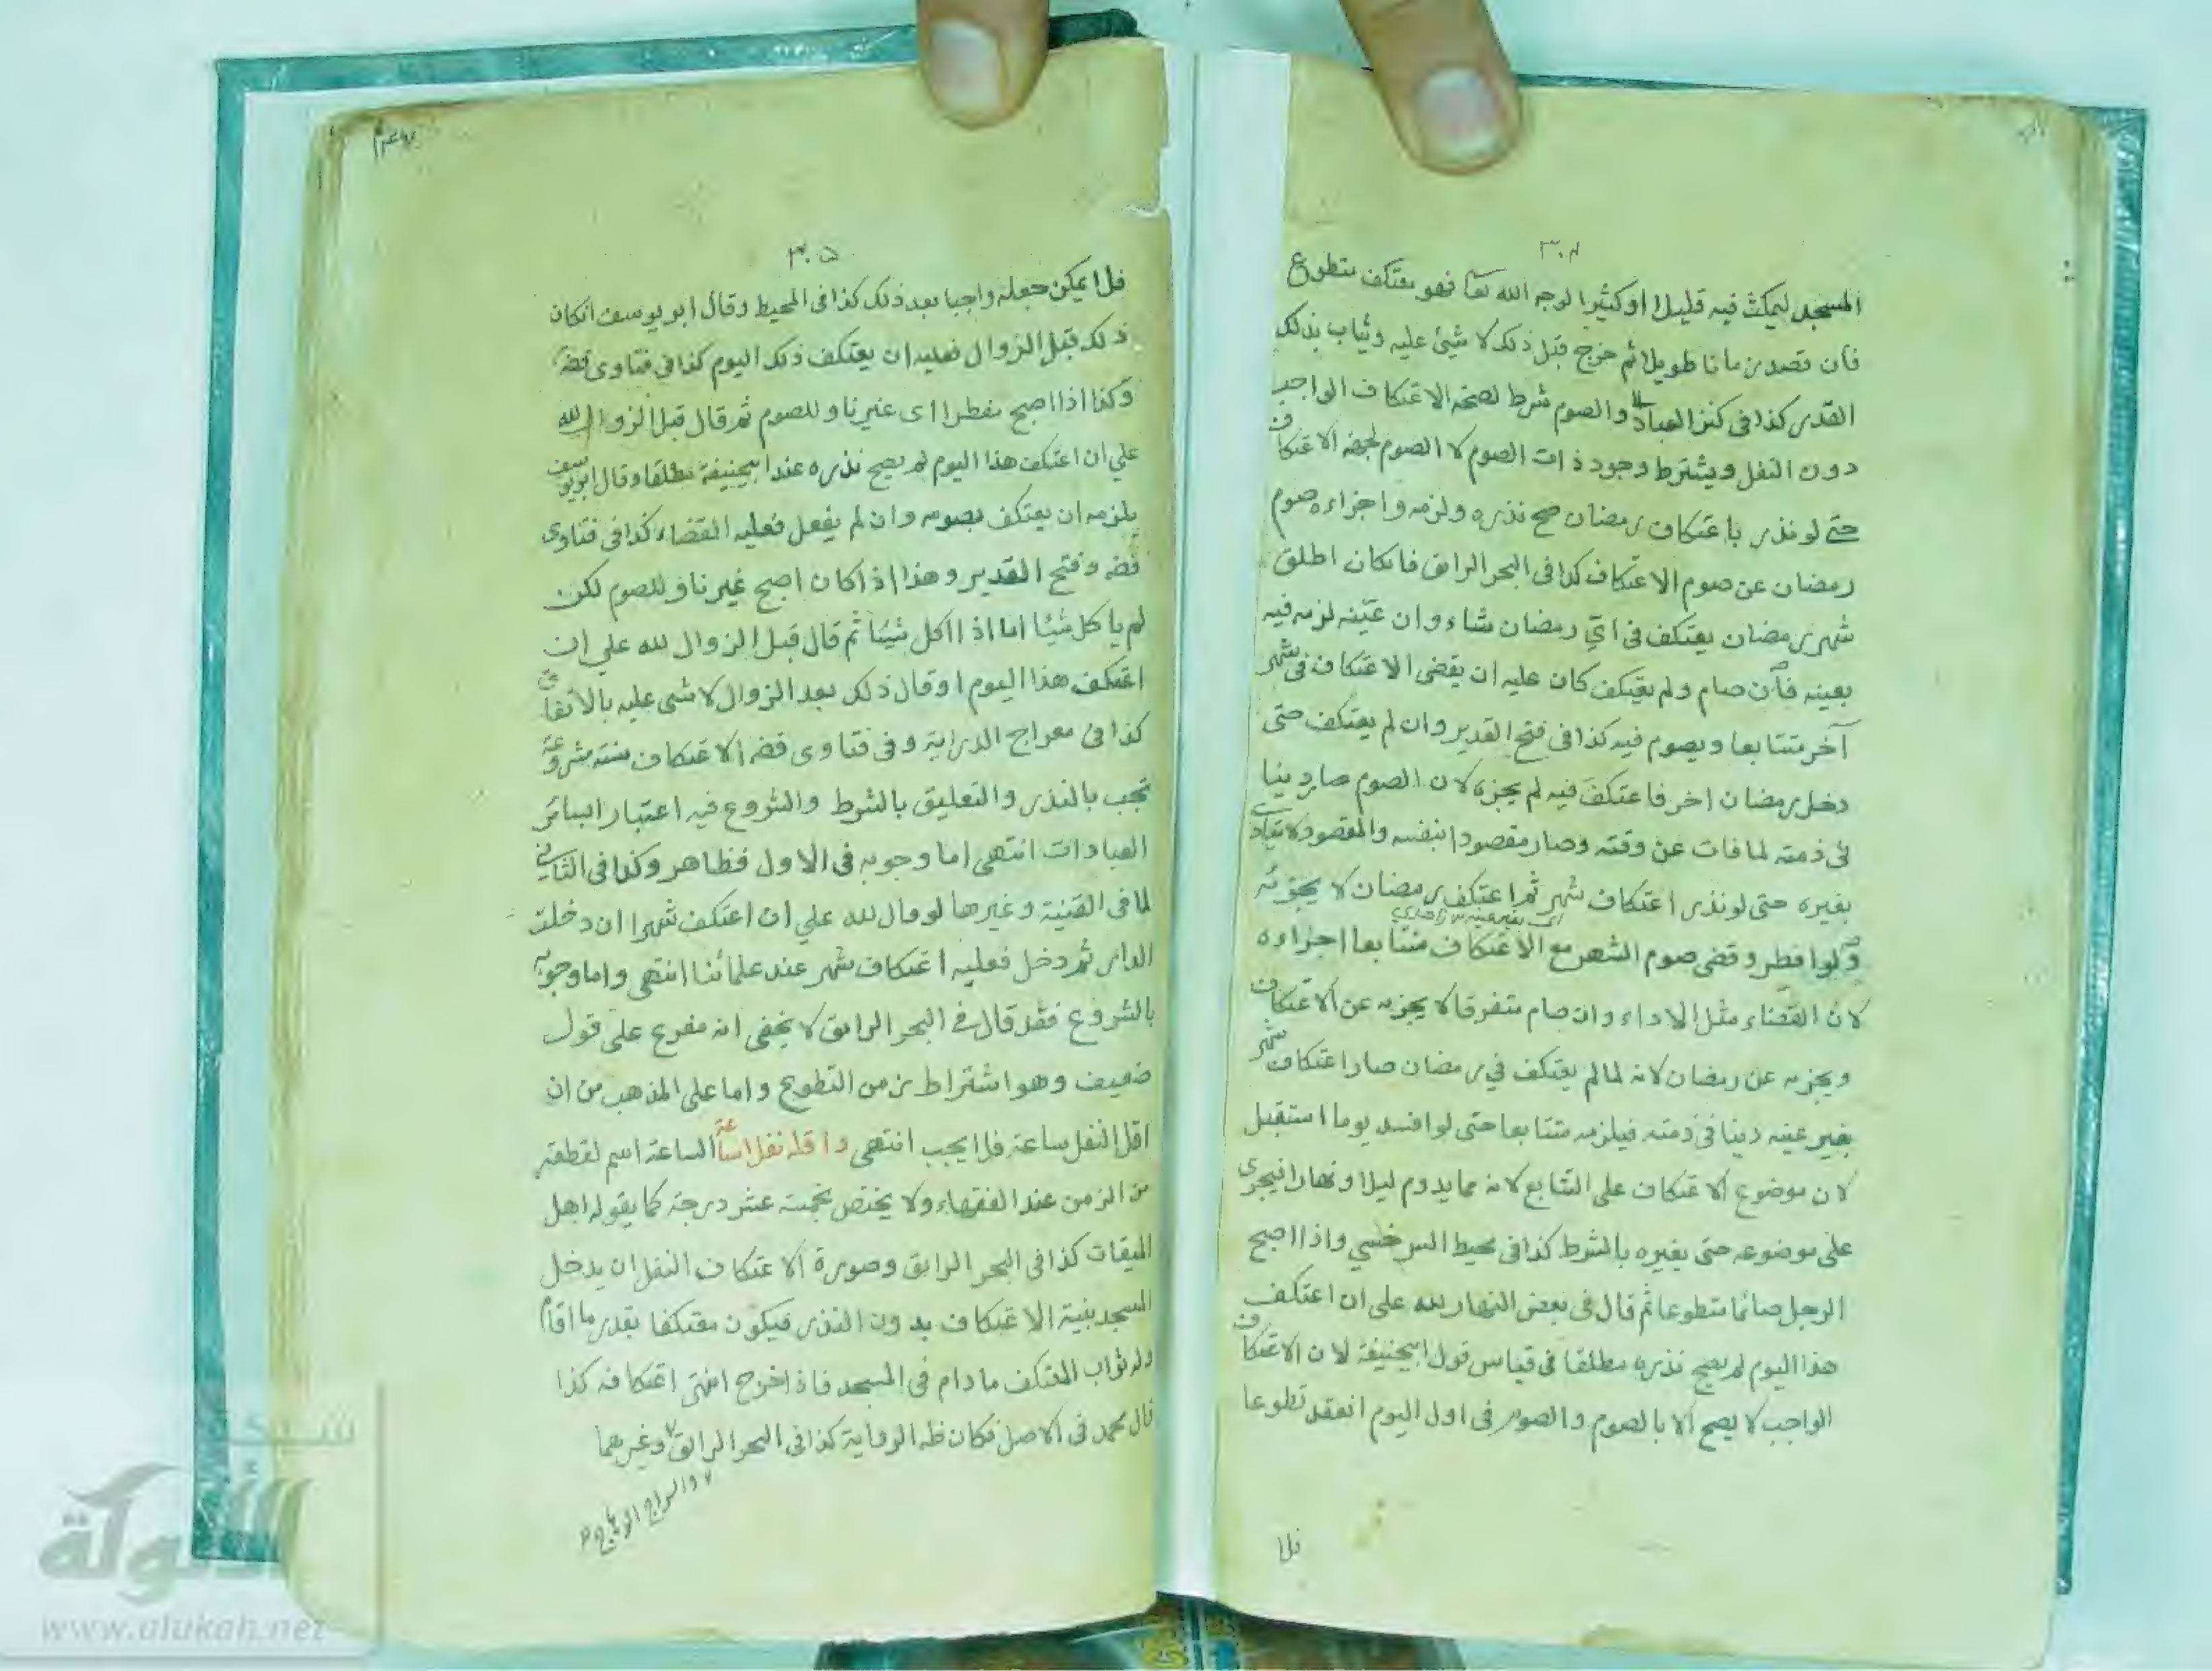 المسجد ليمكث فيه قليلا او كثيرا لوجه الله تعا فهو معتكف متطوع
فان قصد زمانا طويلا ثم خرج قبل ذلك لا شيئ عليه ويثاب بذلك
القدر كذا فى كنز العباد والصوم شرط لصحة الاعتكاف الواجب
دون النفل ويشترط وجود ذات الصوم لا الصوم لجهة الاعتكاف
حتى لو نذر باعتكاف رمضان صح نذره ولزمه واجزاءه صوم
رمضان عن صوم الاعتكاف كذا فى البحر الرائق فانكان اطلق
شهر رمضان يعتكف فى اىّ رمضان شاء وان عيّنه لزمه فيه
بعينه فان صام ولم يعتكف كان عليه ان يقضى الاعتكاف فى شهر
آخر متتابعا ويصوم فيه كذا فى فتح القدير وان لم يعتكف حتى
دخل رمضان اخر فاعتكف فيه لم يجزه لان الصوم صار دينا
فى ذمته لما فات عن وقته وصار مقصودا بنفسه والمقصود لا يتادى
بغيره حتى لو نذر اعتكاف شهر ثم اعتكف رمضان لا يجزئه
اى بغير عينه
ولو افطر وقضى صوم الشهر مع الاعتكاف متتابعا اجزاءه
لان القضاء مثل الاداء وان صام متفرقا لا يجزيه عن الاعتكاف
ويجزيه عن رمضان لانه لما لم يعتكف في رمضان صار اعتكاف شهر
بغير عينه دينا فى ذمته فيلزمه متتابعا حتى لو افسد يوما استقبل
لان موضوع الاعتكاف على التتابع لانه مما يدوم ليلا ونهارا فيجرى
على موضوعه حتى يغيره بالشرط كذا فى محيط السرخسي واذا اصبح
الرجل صائما متطوعا ثم قال فى بعض النهار لله على ان اعتكف
هذا اليوم لم يصح نذره مطلقا فى قياس قول ابيحنيفة لان الاعتكاف
الواجب لا يصح الا بالصوم والصوم فى اول اليوم انعقد تطوعا
فلا
٣٠٥
فلا يمكن جعله واجبا بعد ذلك كذا فى المحيط وقال ابو يوسف انكان
ذلك قبل الزوال فعليه ان يعتكف ذلك اليوم كذا فى فتاوى قضه
وكذا اذا اصبح مفطرا اى غير ناو للصوم ثم قال قبل الزوال لله
علي ان اعتكف هذا اليوم لم يصح نذره عند ابيحنيفة مطلقا وقال ابو يوسف
يلزمه ان يعتكف بصومه وان لم يفعل فعليه القضاء كذا فى فتاوى
قضه وفتح القدير وهذا اذا كان اصبح غير ناو للصوم لكن
لم ياكل شيئا اما اذا اكل شيئا ثم قال قبل الزوال لله علي ان
اعتكف هذا اليوم او قال ذلك بعد الزوال لا شى عليه بالاتفاق
كذا فى معراج الدراية وفى فتاوى قضه الاعتكاف سنة مشروعة
تجب بالنذر والتعليق بالشرط والشروع فيه اعتبارا بسائر
العبادات انتهى اما وجوبه فى الاول فظاهر وكذا فى الثانى
لما فى القنية وغيرها لو قال لله علي ان اعتكف شهرا ان دخلت
الدار ثم دخل فعليه اعتكاف شهر عند علمائنا انتهى واما وجوبه
بالشروع فقد قال فى البحر الرائق لا يخفى انه مفرع على قول
ضعيف وهو اشتراط زمن التطوع واما على المذهب من ان
اقل النفل ساعة فلا يجب انتهى واقله نفلا ساعة الساعة اسم لقطعة
من الزمن عند الفقهاء ولا يختص بخمسة عشر درجة كما يقوله اهل
الميقات كذا فى البحر الرائق وصورة الاعتكاف النفل ان يدخل
المسجد بنية الاعتكاف بدون النذر فيكون معتكفا بقدر ما اقام
وله ثواب المعتكف ما دام فى المسجد فاذا خرج انتهى اعتكافه كذا
قال محمد فى الاصل فكان ظه الرواية كذا فى البحر الرائق وغيرهما
والسراج الوهاج
شبكة
الألوكة
www.alukah.net